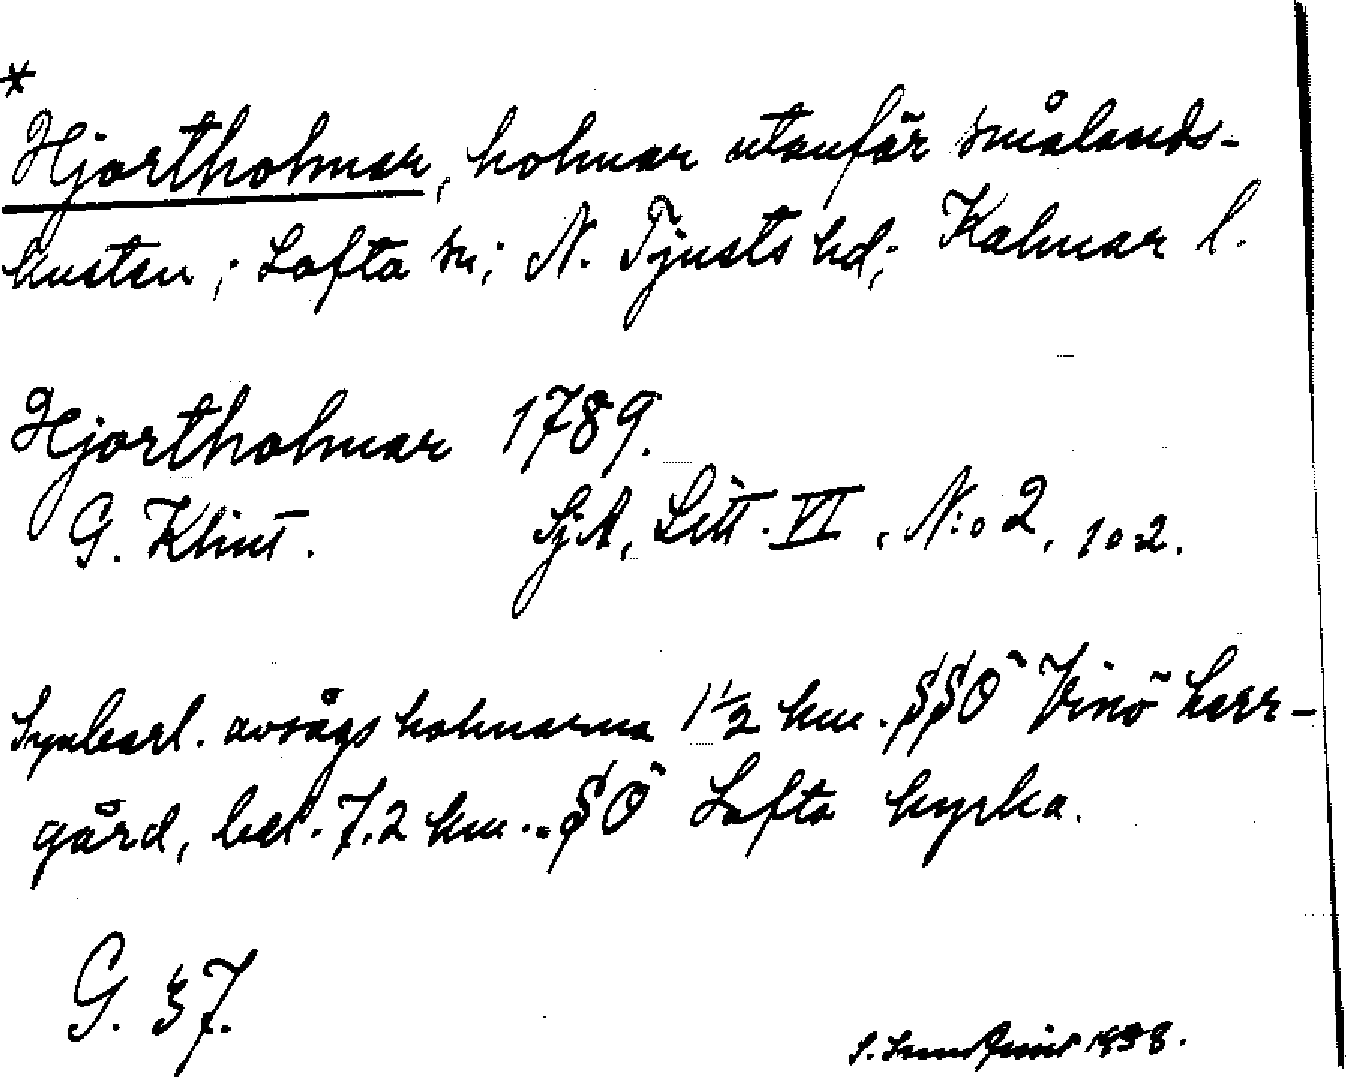 *
Hjortholmar, holmar utanför smålands-
kusten; Lofta sn; N. Tjusts hd; Kalmar l.
Hjortholmar 1789.
G. Klint. SjA, Litt. VI, N:o 2, 102.
Synbarl. avsågs holmarna 1 1/2 km. SSÖ Vinö herr-
gård, bel. 7.2 km. SÖ Lofta kyrka.
G. 37.
S. 1938.